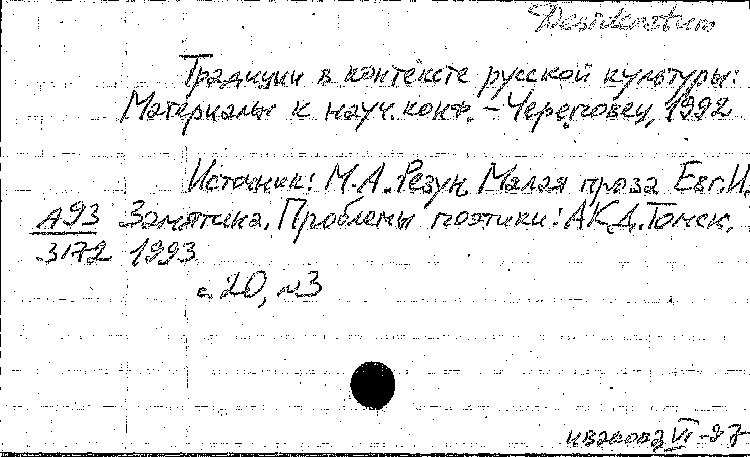 Desideratum
Традиции в контексте русской культуры:
Материалы к науч. конф. – Череповец, 1992
Источник: М.А. Резун Малая проза Евг. И.
А93 Замятина. Проблемы поэтики: АКД. Томск.
3172 1993
с. 20, №3
VI - 97